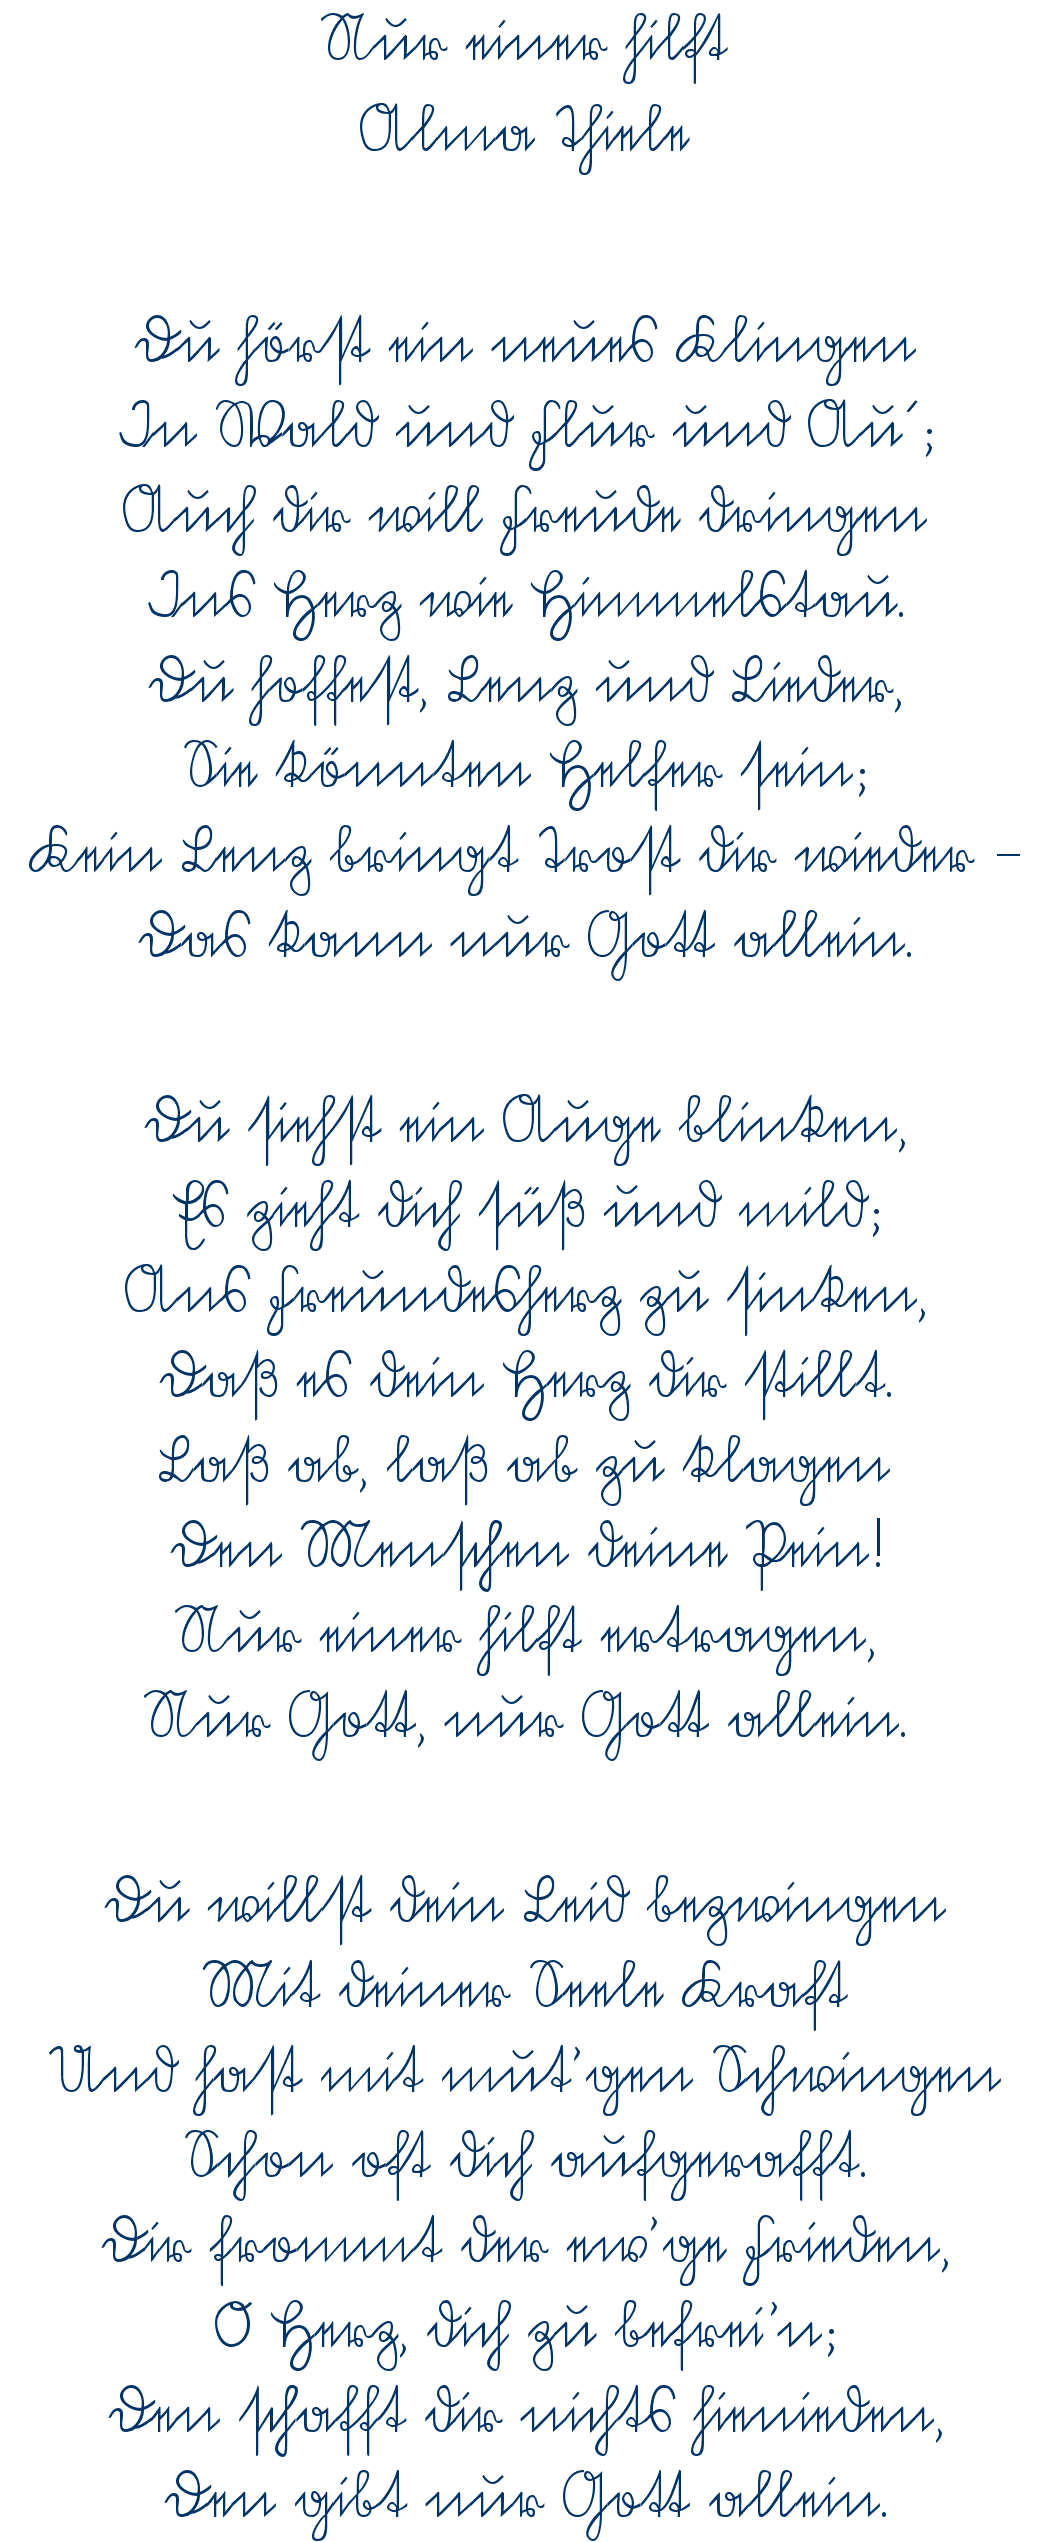 Nur einer hilft
Alma Thiele
Du hörst ein neues Klingen
In Wald und Flur und Au´;
Auch dir will Freude dringen
Ins Herz wie Himmelstau.
Du hoffest, Lenz und Lieder,
Sie könnten Helfer sein;
Kein Lenz bringt Trost dir wieder –
Das kann nur Gott allein.
Du siehst ein Auge blinken,
Es zieht dich süß und mild;
Ans Freundesherz zu sinken,
Daß es dein Herz dir stillt.
Laß ab, laß ab zu klagen
Den Menschen deine Pein!
Nur einer hilft ertragen,
Nur Gott, nur Gott allein.
Du willst dein Leid bezwingen
Mit deiner Seele Kraft
Und hast mit mut’gen Schwingen
Schon oft dich aufgerafft.
Dir frommt der ew’ge Frieden,
O Herz, dich zu befrei’n;
Den schafft dir nichts hienieden,
Den gibt nur Gott allein.